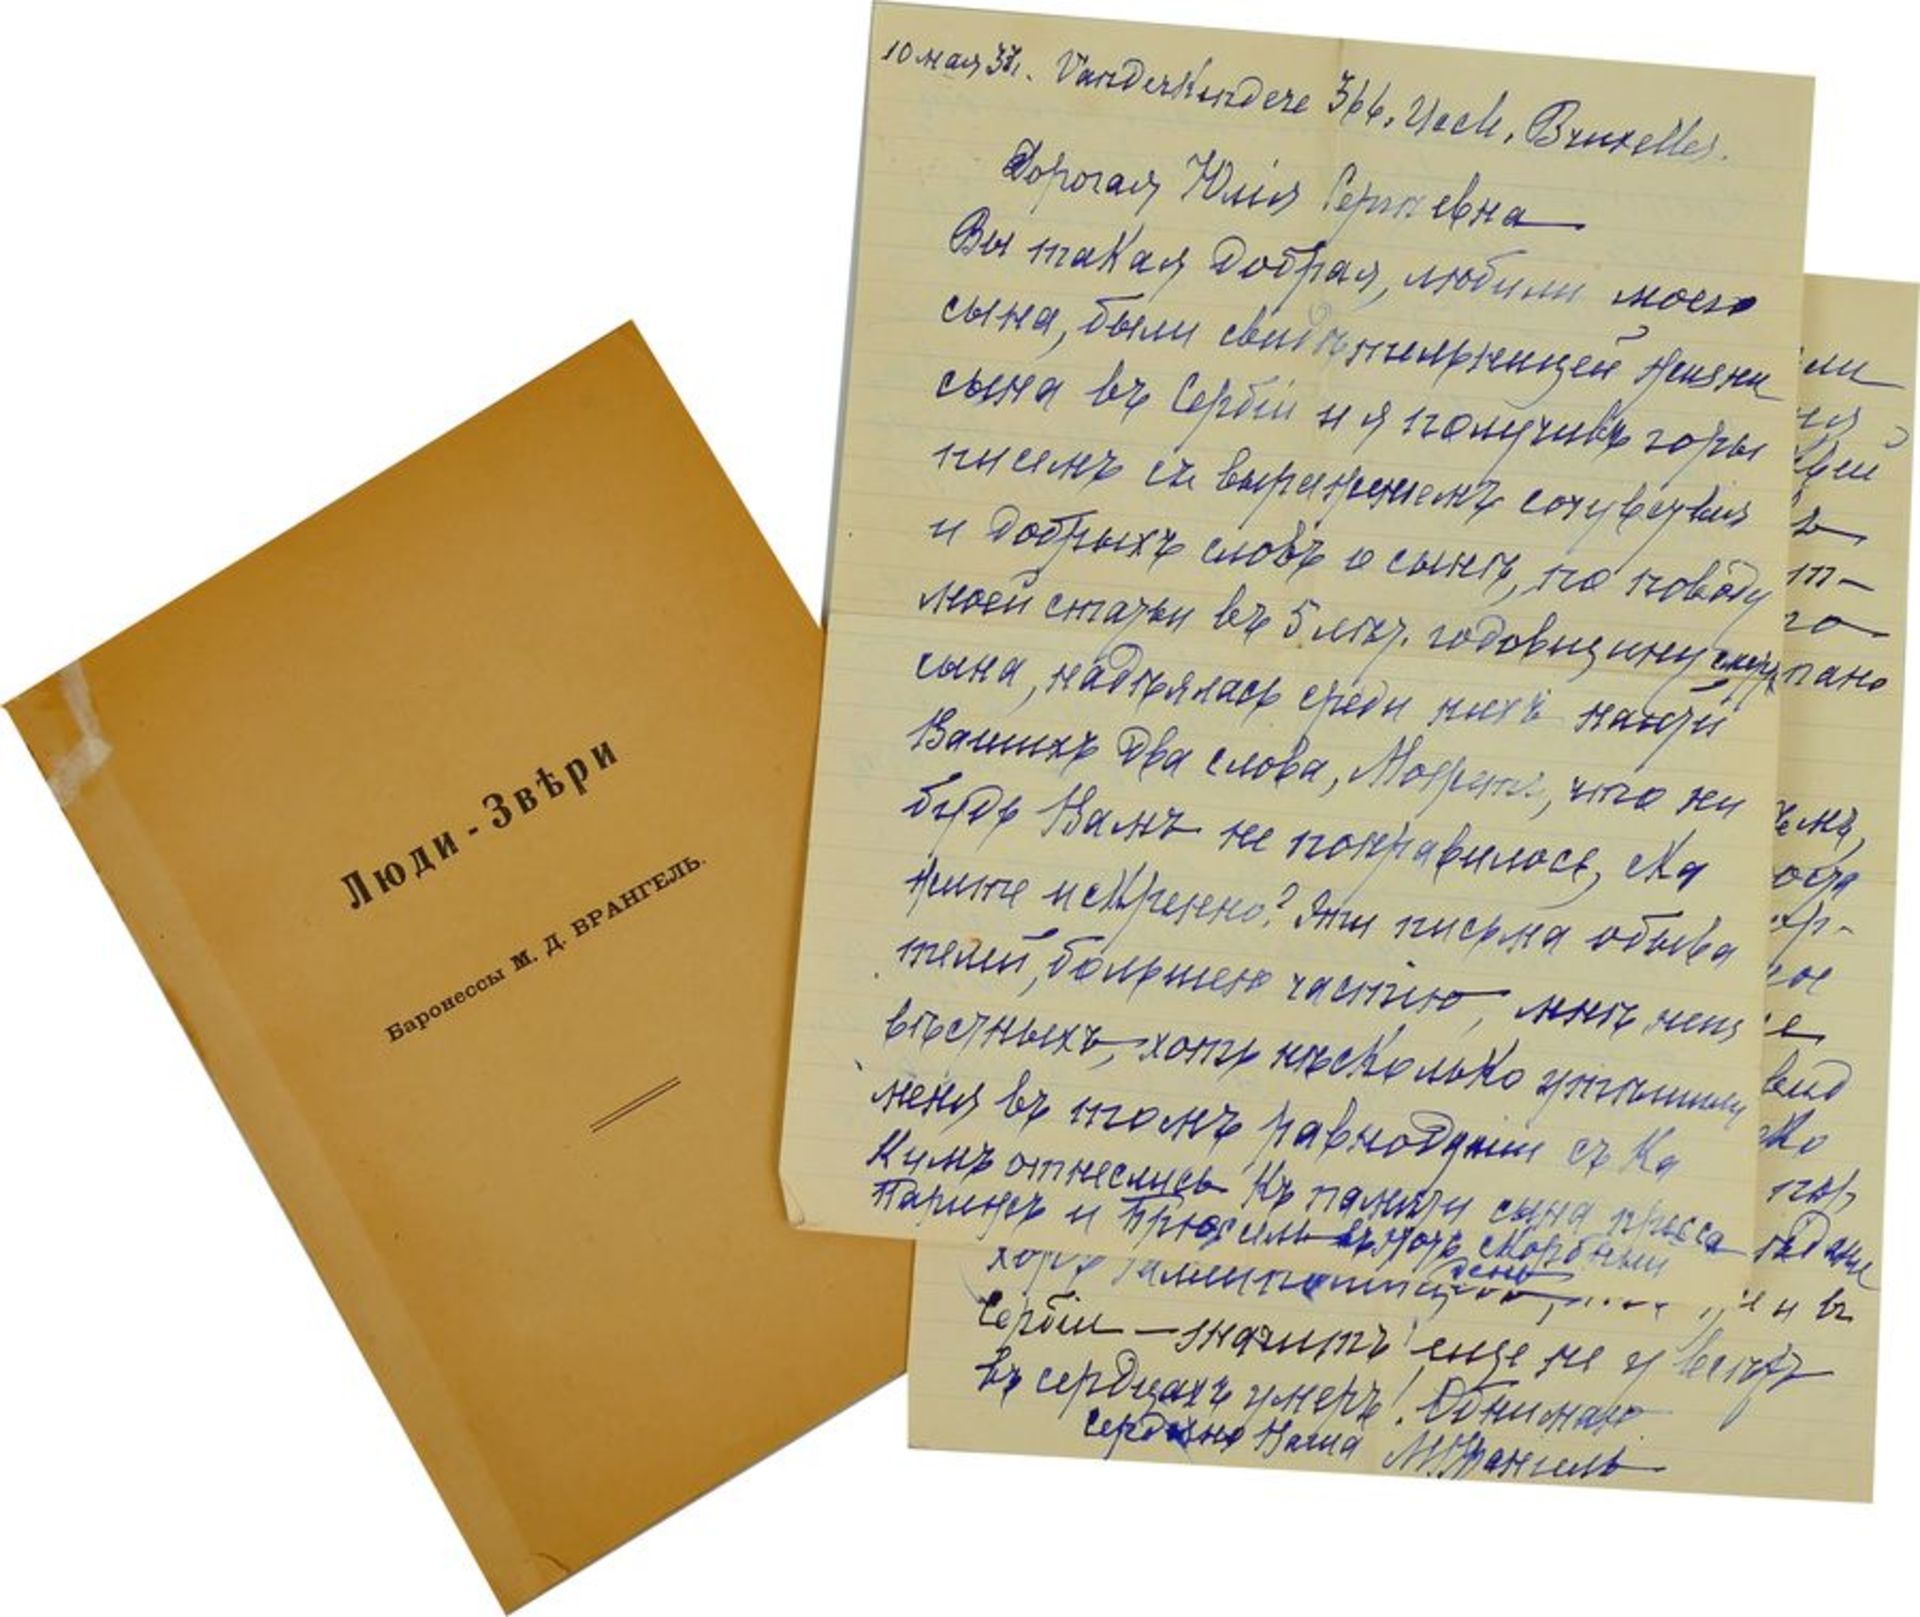 Люди - Звѣри
Баронессы М. Д. ВРАНГЕЛЬ.
10 мая 37. Vanderkindere 366. Uccle. Bruxelles.
Дорогая Юлія Сергѣевна
Вы такая добрая, любили моего
сына, были свидѣтельницей жизни
сына въ Сербіи и я получивъ горы
писемъ съ выраженіемъ сочувствія
и добрыхъ словъ о сынѣ, по поводу
моей статьи въ 5 лѣт. годовщину смерт
сына, надѣялась среди нихъ найти
Вашихъ два слова, Можетъ, что ни
будь Вамъ не понравилось, ска
жите искренно? Эти письма обыва
телей, большею частію, мнѣ неиз
вѣстныхъ, хоть нѣсколько утѣшили
меня въ томъ равнодушіи съ ка
кимъ отнеслись къ памяти сына пресса
Парижъ и Брюсель въ этотъ скорбный
день
и въ
Сербіи — значитъ еще не у всѣхъ
въ сердцахъ умеръ! Обнимаю
сердечно Ваша М. Врангель